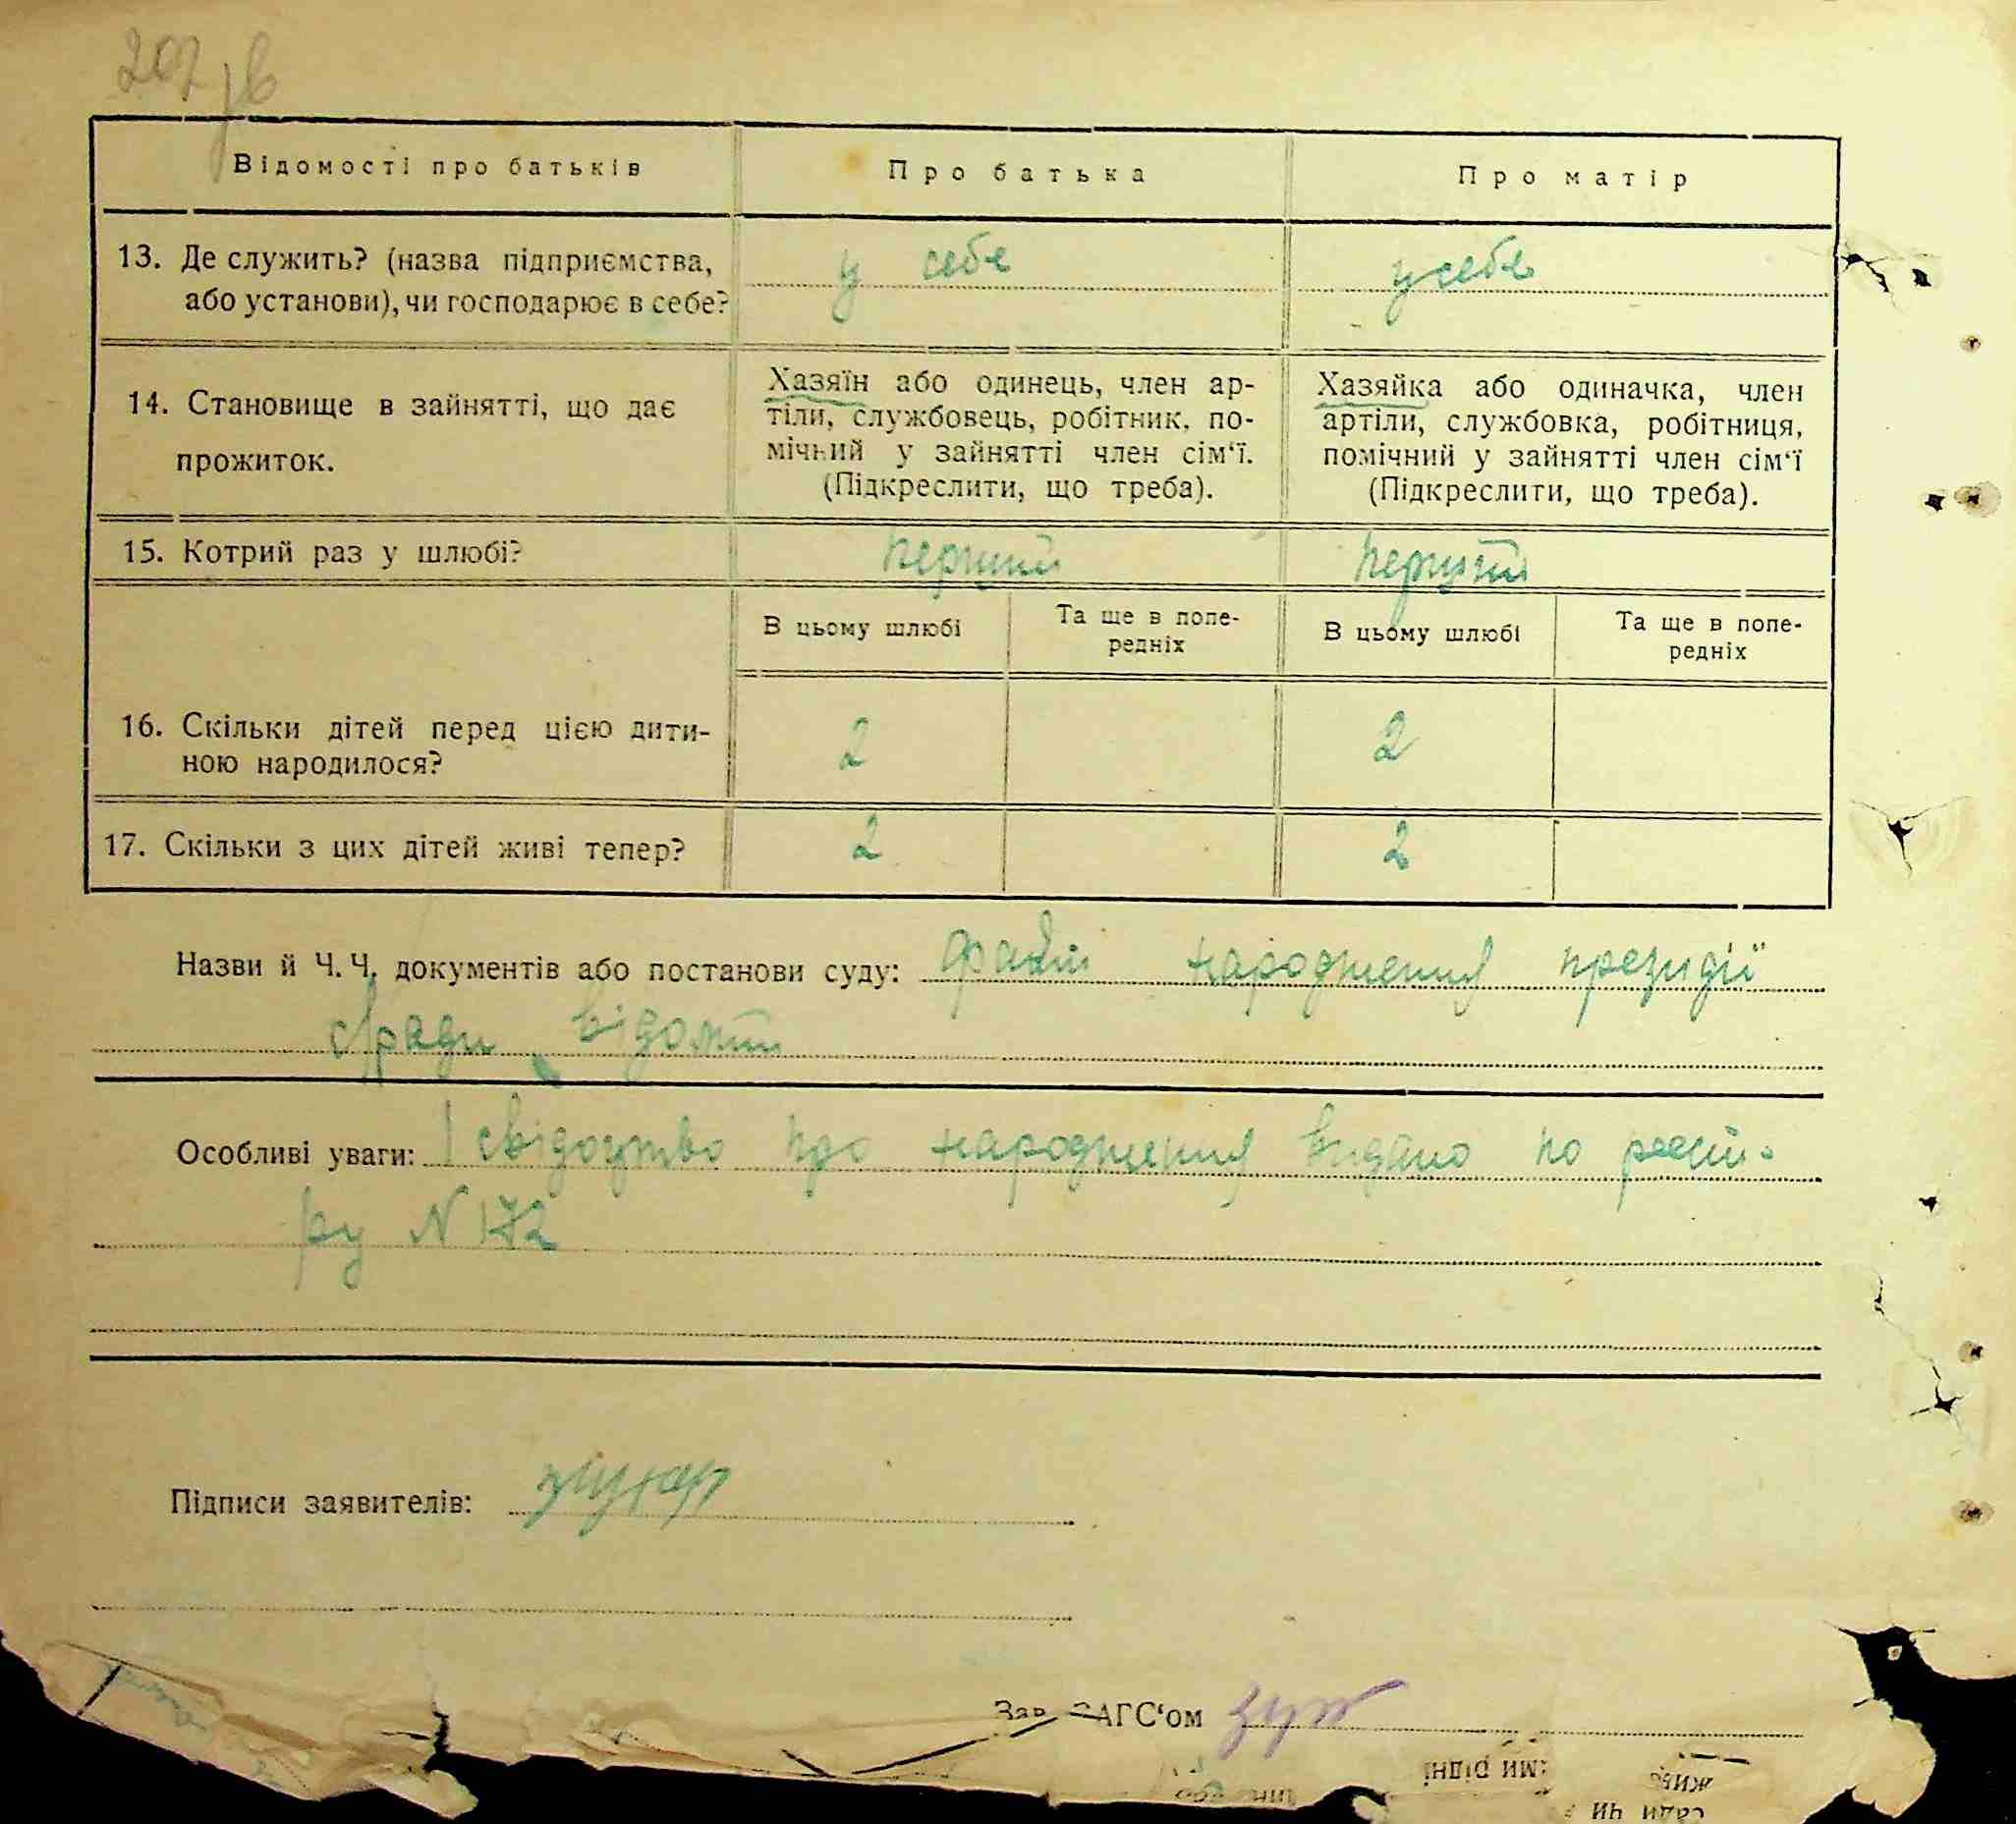 207 зв
Відомості про батьків
Про батька
Про матір
13. Де служить? (назва підприємства,
або установи), чи господарює в себе?
у себе
у себе
14. Становище в зайнятті, що дає
прожиток.
Хазяїн або одинець, член ар-
тіли, службовець, робітник, по-
мічний у зайнятті член сім‘ї.
(Підкреслити, що треба).
Хазяйка або одиначка, член
артіли, службовка, робітниця,
помічний у зайнятті член сім‘ї
(Підкреслити, що треба).
15. Котрий раз у шлюбі?
перший
перший
В цьому шлюбі
Та ще в попе-
редніх
В цьому шлюбі
Та ще в попе-
редніх
16. Скільки дітей перед цією дити-
ною народилося?
2
2
17. Скільки з цих дітей живі тепер?
2
2
Назви й Ч. Ч. документів або постанови суду: факт народження президії
с/ради відомий
Особливі уваги: свідоцтво про народження видано по реєст-
ру N 172
Підписи заявителів:
Зав. ЗАГС‘ом